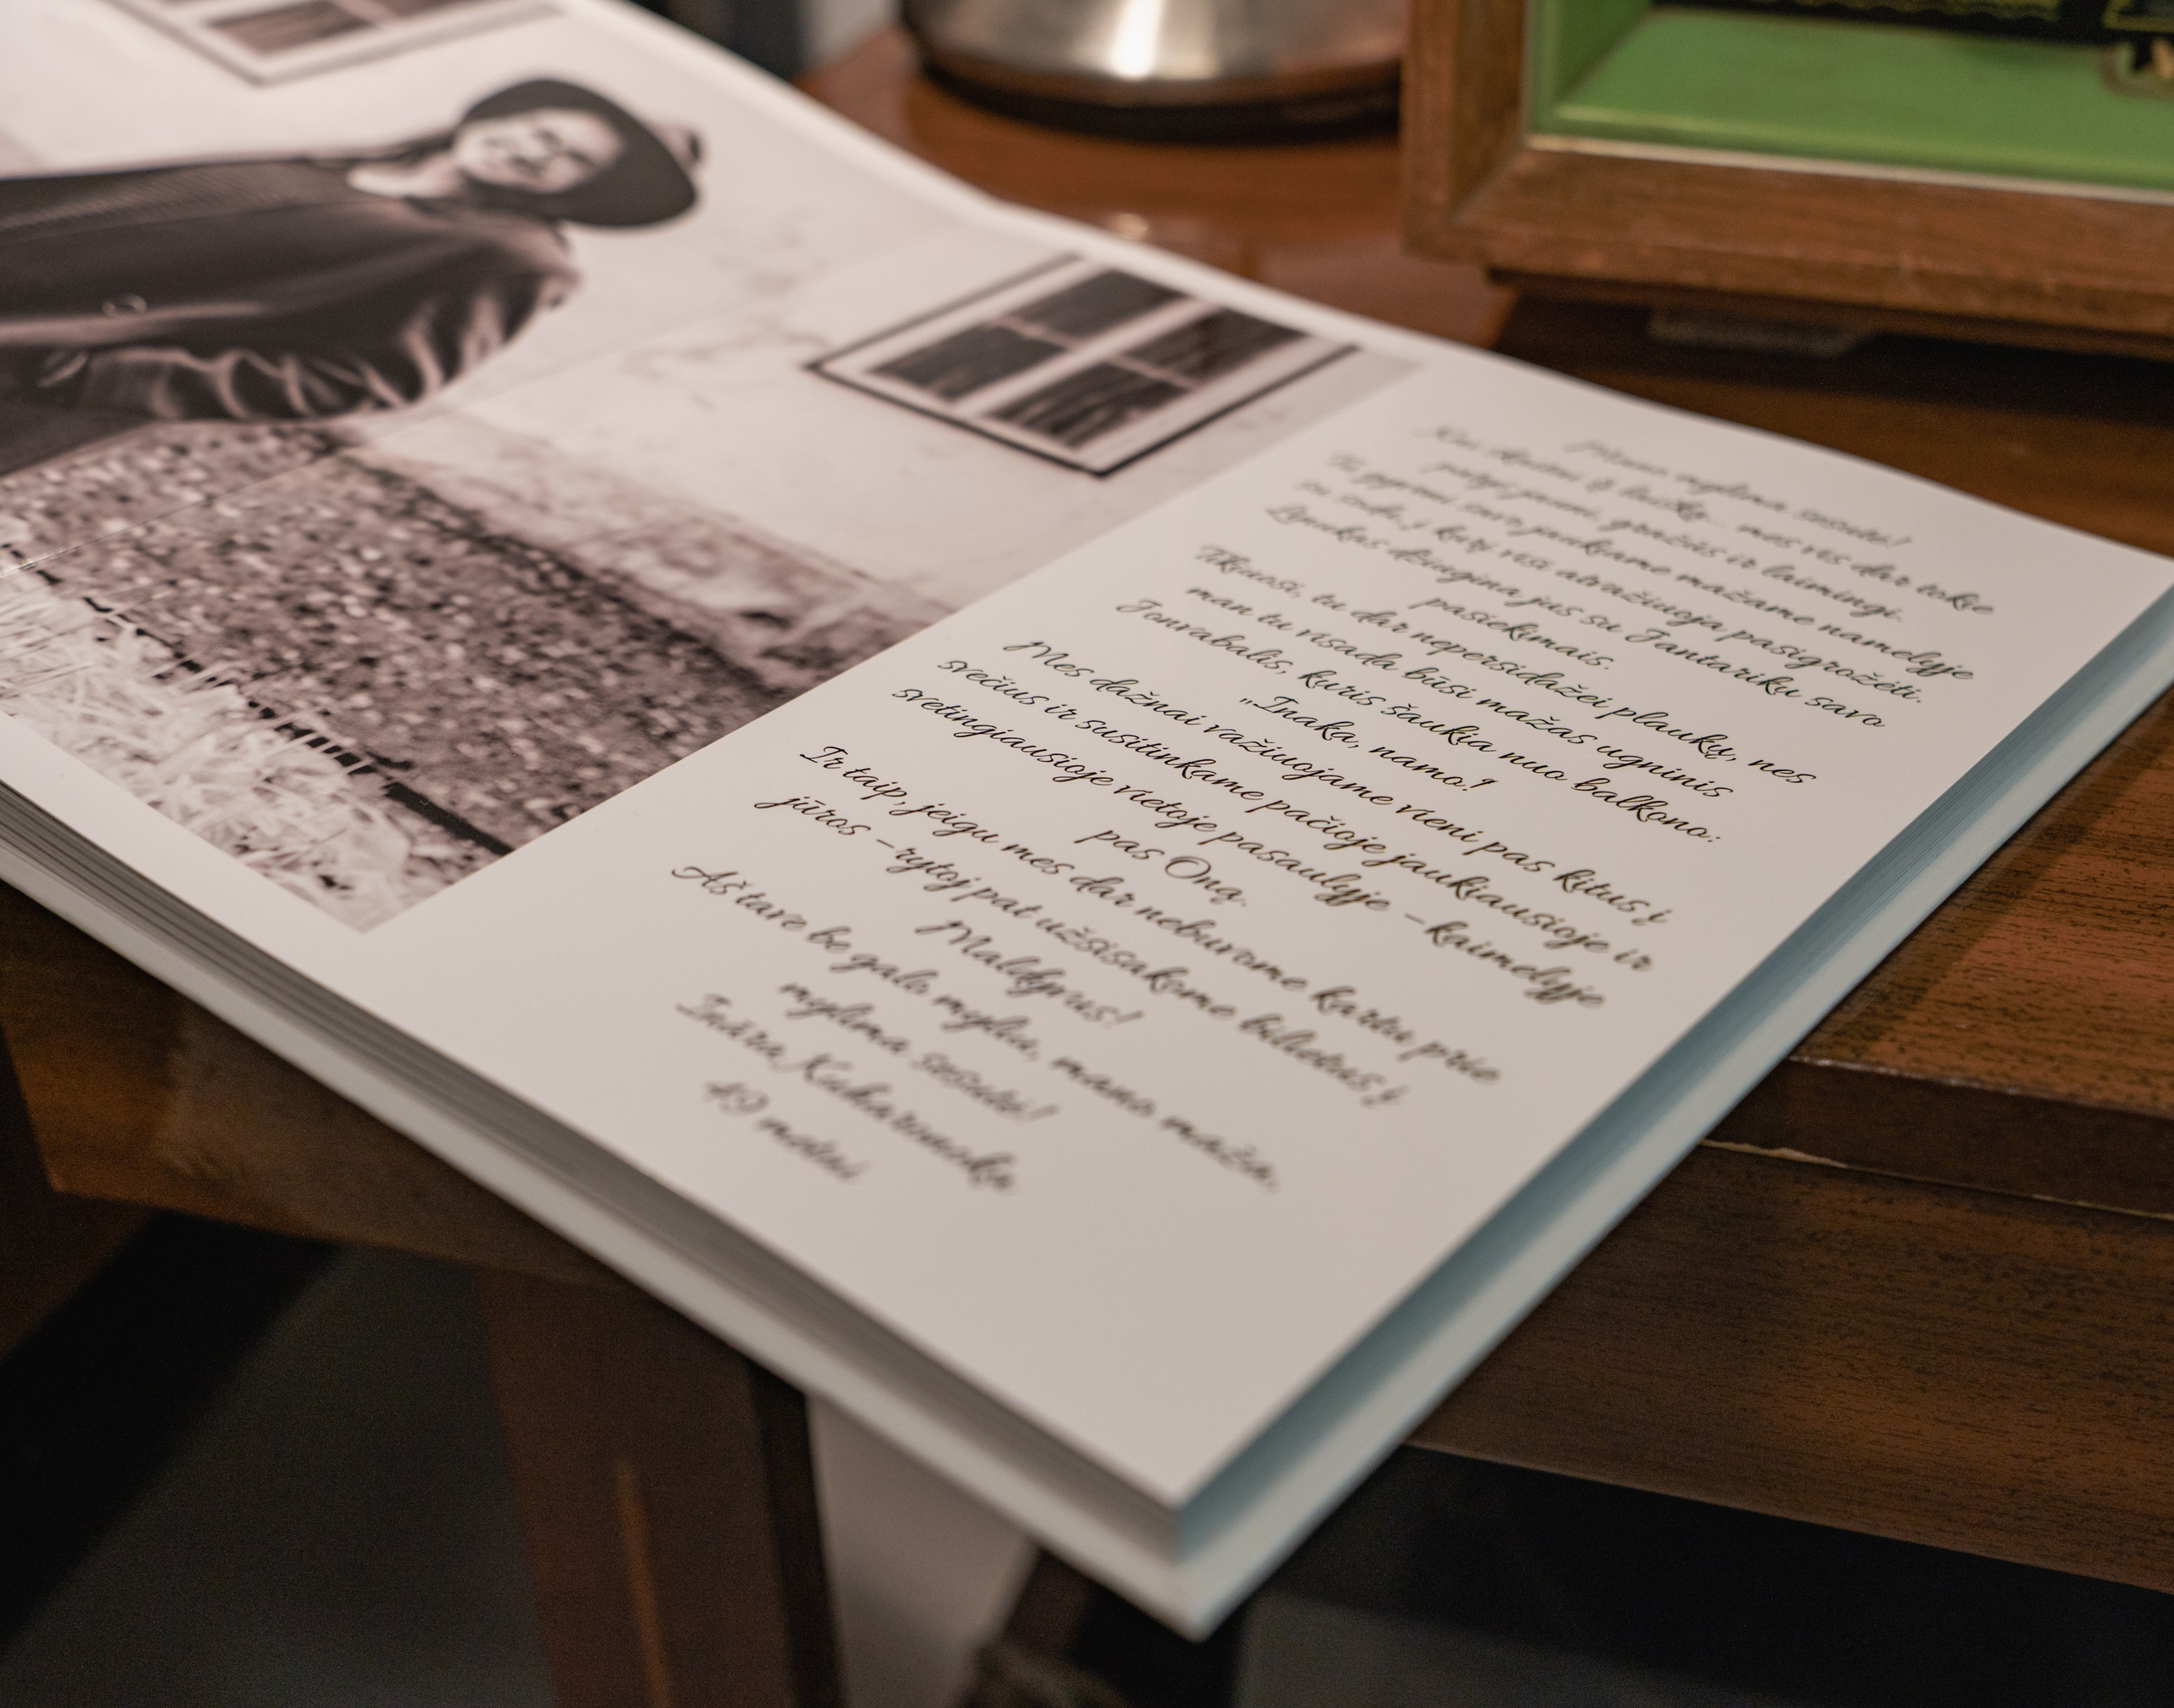 Mano mylima sesute!
Kai skaitai šį laišką... mes vis dar tokie
patys jauni, gražūs ir laimingi.
Tu gyveni savo jaukiame mažame namelyje
su sodu, į kurį visi atvažiuoja pasigrožėti.
Linukas džiugina jus su Jantariku savo
pasiekimais.
Tikiuosi, tu dar nepersidažei plaukų, nes
man tu visada būsi mažas ugninis
Jonvabalis, kuris šaukia nuo balkono:
„Inaka, namo!
Mes dažnai važiuojame vieni pas kitus į
svečius ir susitinkame pačioje jaukiausioje ir
svetingiausioje vietoje pasaulyje – kaimelyje
pas Oną.
Ir taip, jeigu mes dar nebuvome kartu prie
jūros – rytoj pat užsisakome bilietus į
Maldyvus!
Aš tave be galo myliu, mano maža,
mylima sesute!
Inara Kukaronoka
49 metai